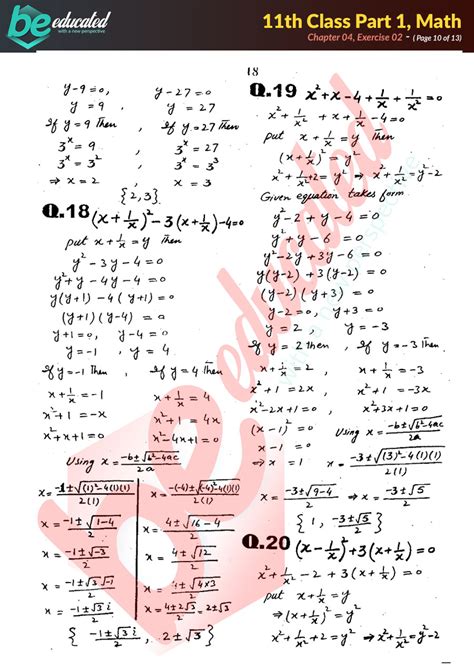 be educated
with a new perspective
11th Class Part 1, Math
Chapter 04, Exercise 02 - ( Page 10 of 13)
18
y-9=0, y-27=0
y = 9 , y = 27
If y=9 Then , If y=27 Then
3^x = 9 , 3^x = 27
3^x = 3^2 , 3^x = 3^3
⇒ x = 2 , x = 3
{2,3}
Q.18 (x+1/x)^2-3(x+1/x)-4=0
put x+1/x=y Then
y^2-3y-4=0
y^2+y-4y-4=0
y(y+1)-4(y+1)=0
(y+1)(y-4)=0
y+1=0, y-4=0
y=-1 , y=4
If y=-1 Then , If y=4 Then
x+1/x=-1 , x+1/x=4
x^2+1=-x , x^2+1=4x
x^2+x+1=0 , x^2-4x+1=0
Using x = (-b±√(b^2-4ac))/2a
x = (-1±√((1)^2-4(1)(1)))/2(1) x = (-(-4)±√((-4)^2-4(1)(1)))/2(1)
x = (-1±√(1-4))/2 x = (4±√(16-4))/2
x = (-1±√-3)/2 x = (4±√12)/2
x = (-1±√3 i)/2 x = (4±√(4×3))/2
x = (-1±√3 i)/2 x = (4±2√3)/2 = 2±√3
{ (-1±√3 i)/2 , 2±√3 }
Q.19 x^2+x-4+1/x+1/x^2=0
x^2+1/x^2+x+1/x-4=0
put x+1/x=y Then
(x+1/x)^2=y^2
x^2+1/x^2+2=y^2 ⇒ x^2+1/x^2=y^2-2
Given equation takes form
y^2-2+y-4=0
y^2+y-6=0
y^2-2y+3y-6=0
y(y-2)+3(y-2)=0
(y-2)(y+3)=0
y-2=0, y+3=0
y=2 , y=-3
If y=2 then , If y=-3 Then
x+1/x=2 , x+1/x=-3
x^2+1=2x , x^2+1=-3x
x^2-2x+1=0 , x^2+3x+1=0
(x-1)^2=0 Using x = (-b±√(b^2-4ac))/2a
x-1=0
⇒ x=1 x = (-3±√((3)^2-4(1)(1)))/2(1)
x = (-3±√(9-4))/2 ⇒ x = (-3±√5)/2
{ 1, (-3±√5)/2 }
Q.20 (x-1/x)^2+3(x+1/x)=0
x^2+1/x^2-2+3(x+1/x)=0
put x+1/x=y
⇒(x+1/x)^2=y^2
x^2+1/x^2+2=y^2 ⇒ x^2+1/x^2=y^2-2